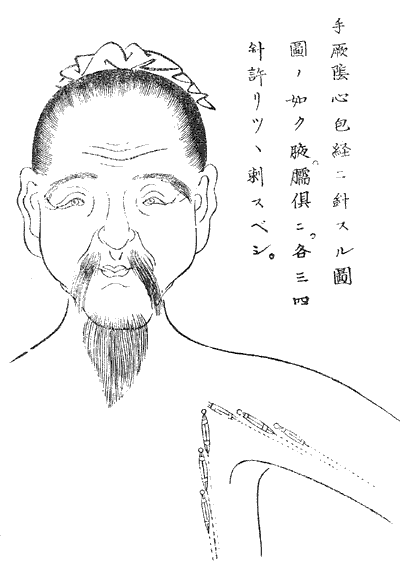 手厥陰心包経ニ針スル圖
圖ノ如ク腋臑倶ニ各三四
針許リツヽ刺スベシ。